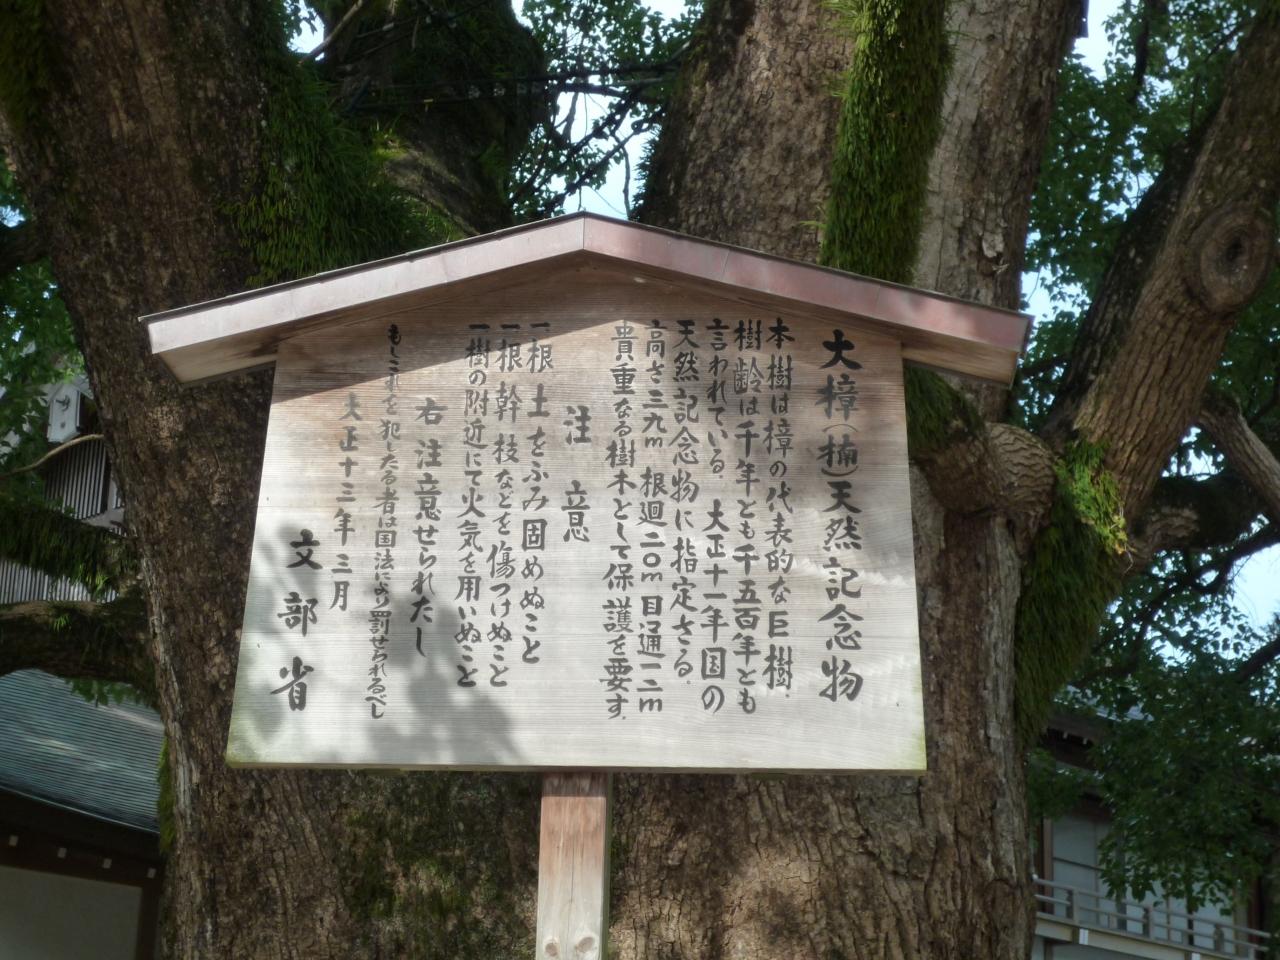 大樟(楠)天然記念物
本樹は樟の代表的な巨樹.
樹齢は千年とも千五百年とも
言われている.大正十一年国の
天然記念物に指定さる.
高さ三九m 根廻二0m目通一二m
貴重なる樹木として保護を要す.
注意
一根土をふみ固めぬこと
一根幹枝などを傷つけぬこと
一樹の附近にて火気を用いぬこと
右注意せられたし
もしこれを犯したる者は国法により罰せられるべし
大正十三年三月
文部省